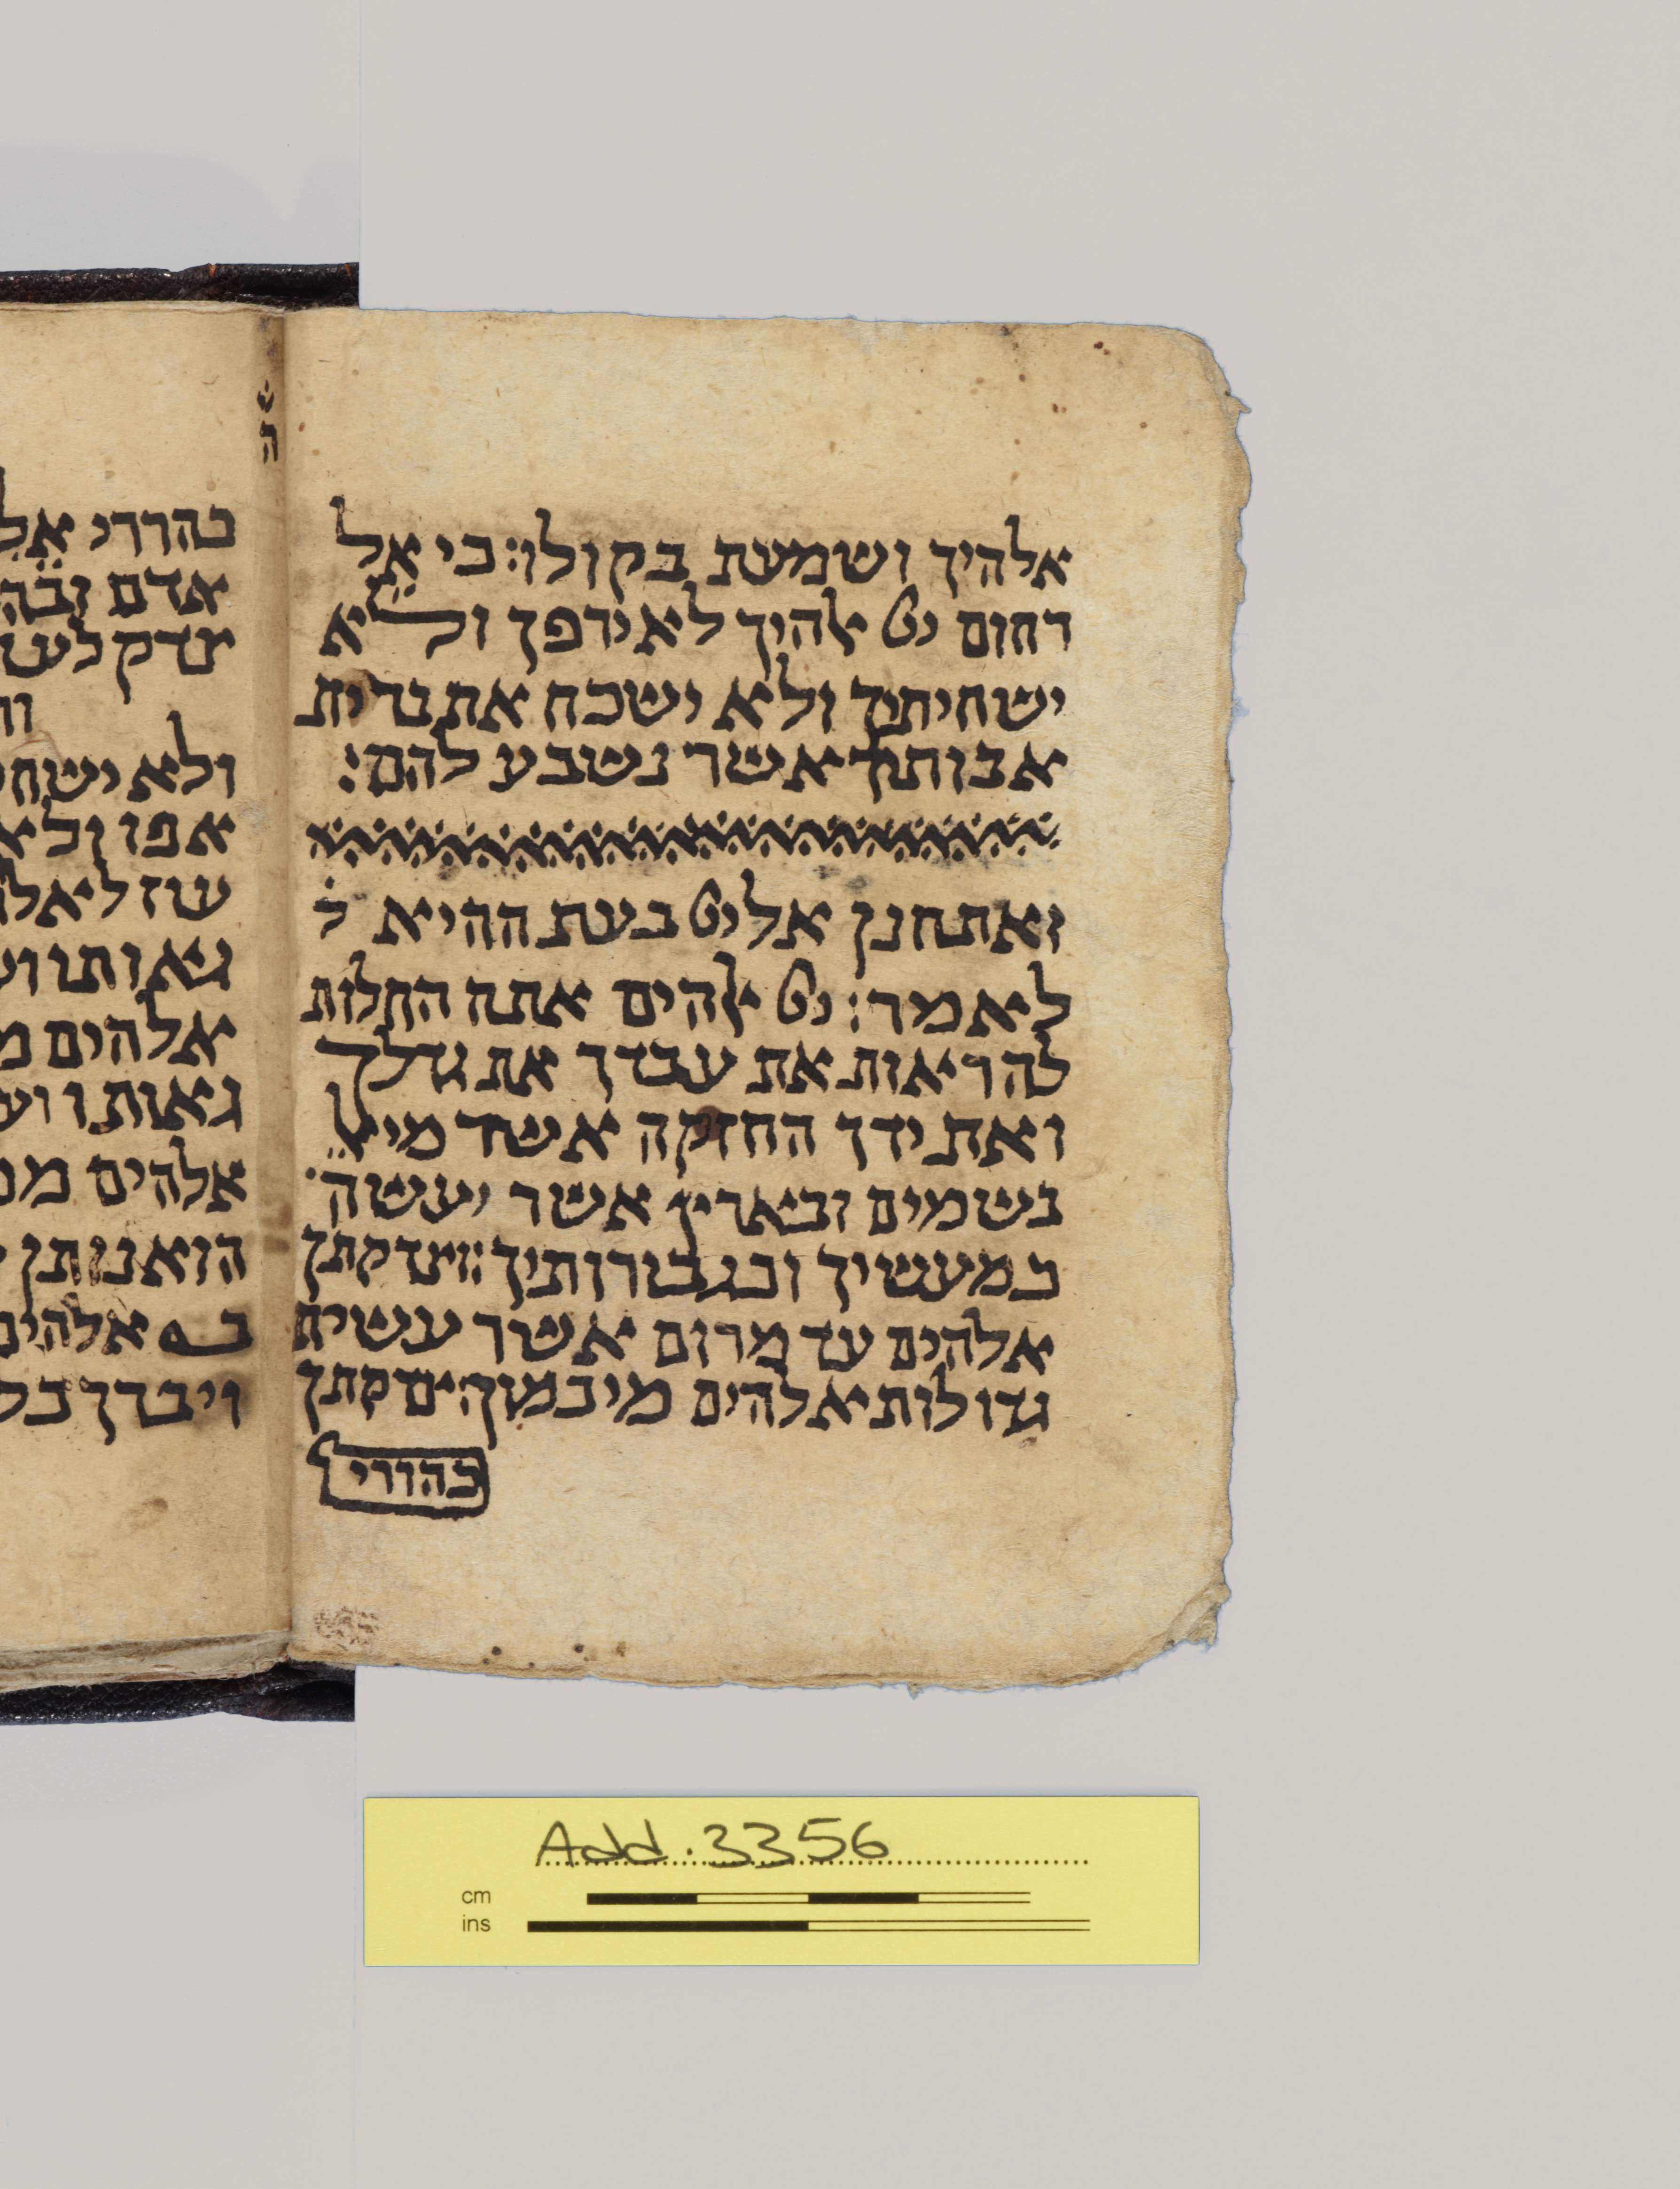 אלהיך ושמעת בקולו: כי אל
רחום יט ﭏהיך לא ירפך ולא
ישחיתך ולא ישכח את ברית
אבותיך אשר נשבע להם:
ואתחנן אל יט בעת ההיא ל
לאמר: יט ﭏהים אתה החלות
להראות את עבדך את גדלך
ואת ידך החזקה אשר מי ﭏ
בשמים ובארץ אשר יעשה
כמעשיך וכגבורותיך: וצדקתך
אלהים עד מרום אשר עשית
גדולות אלהים מי כמוך: צדקתך
כהררי ﭏ
ה
כהררי אל
אדם ובה
צדק לש
ולא ישח
אפו ולא
עוז לאל
גאותו וע
אלהים מ
גאותו וע
אלהים ממ
הוא נותן
ב אלהים
ויברך כל
Add. 3356
cm
ins